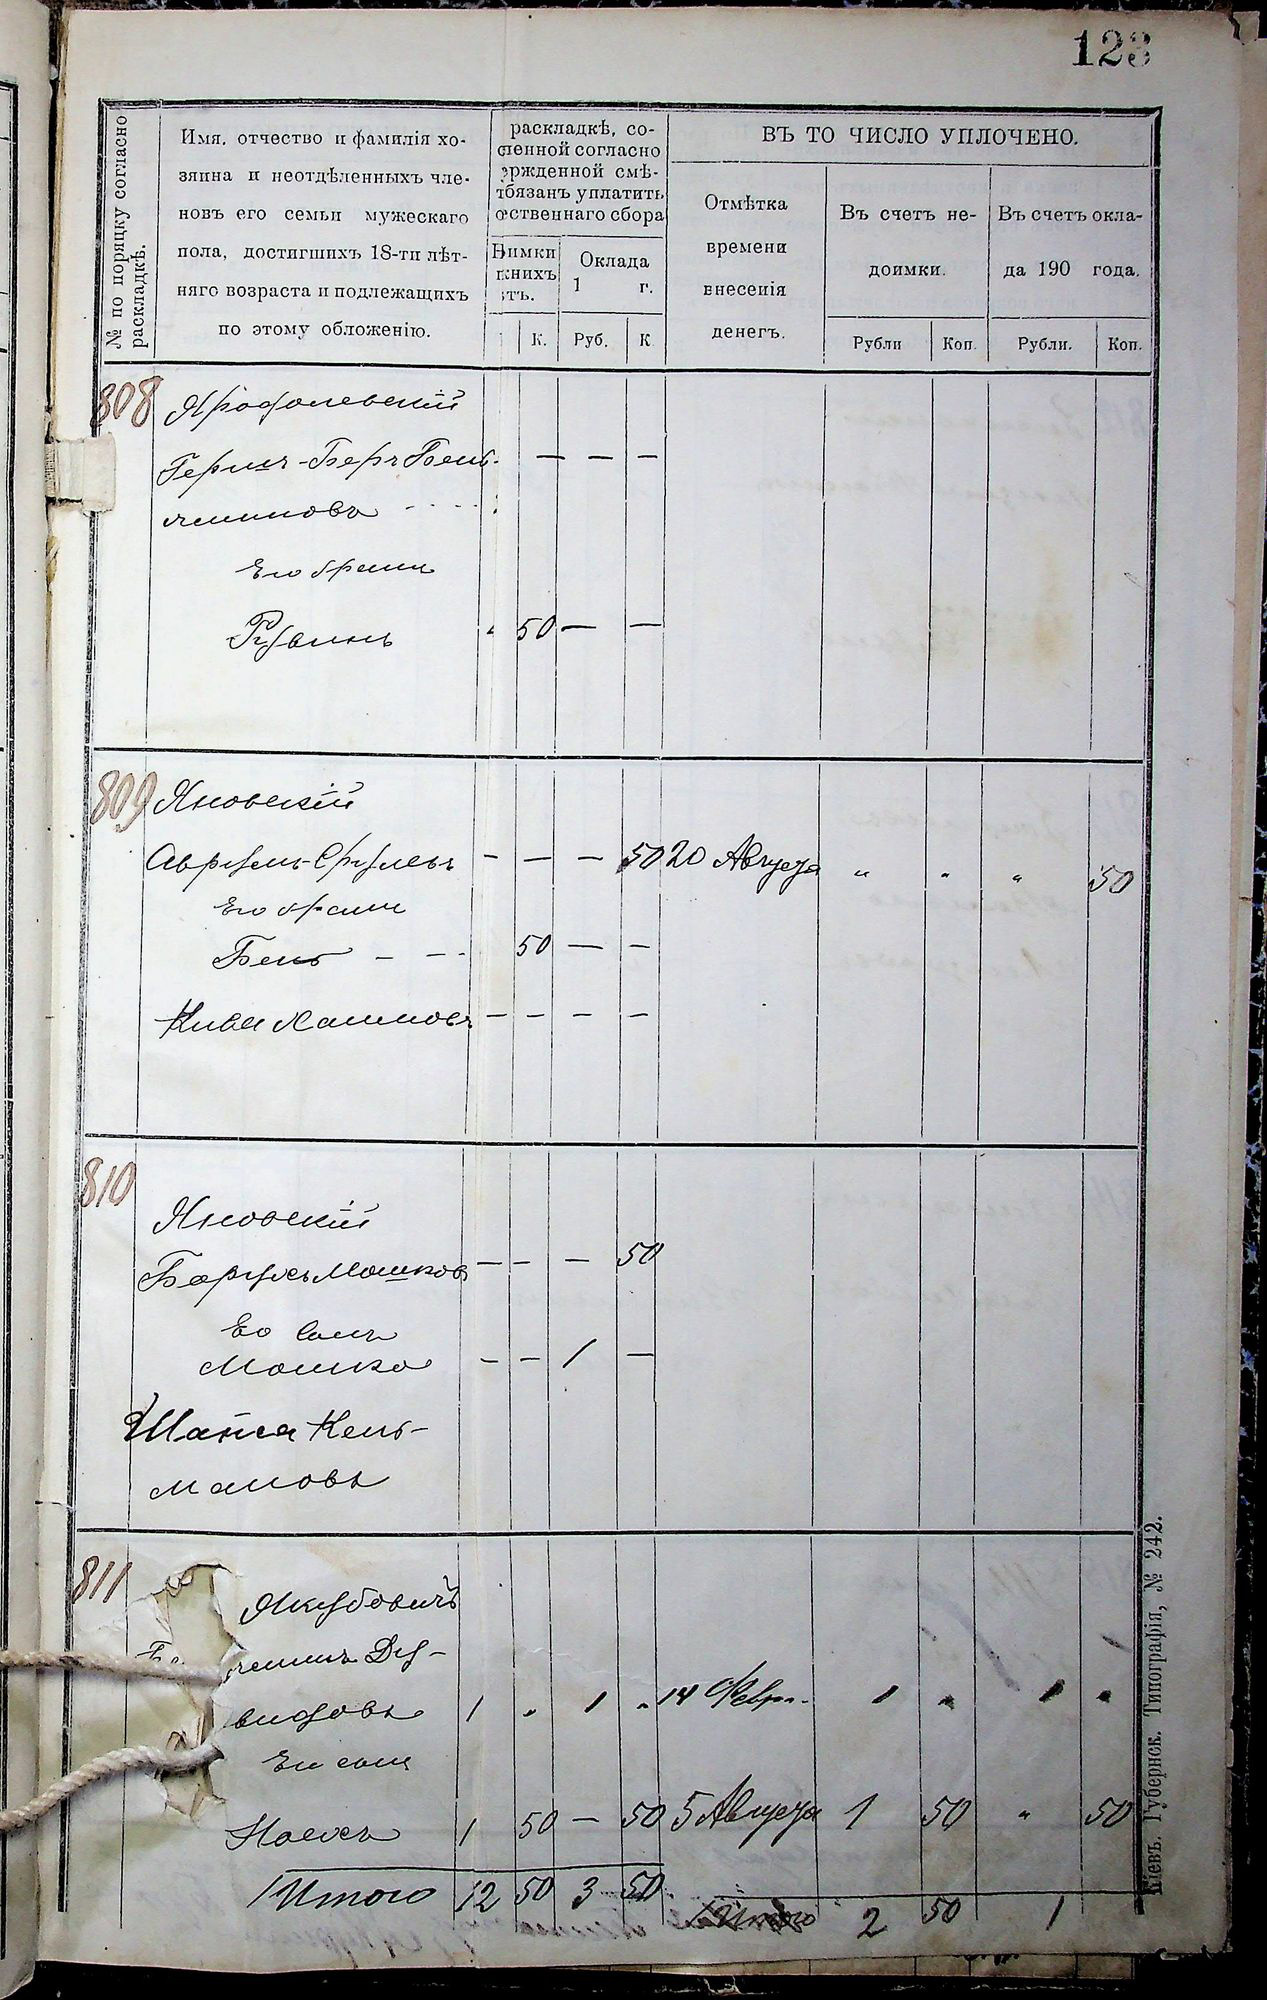 123
№ по порядку согласно
раскладкѣ.
Имя, отчество и фамилія хо-
зяина и неотдѣленныхъ чле-
новъ его семьи мужескаго
пола, достигшихъ 18-ти лѣт-
няго возраста и подлежащихъ
по этому обложенію.
раскладкѣ, со-
вленной согласно
ержденной смѣ-
обязанъ уплатить
ественнаго сбора
имки
нихъ
тъ.
Оклада
1 г.
К. Руб. К.
ВЪ ТО ЧИСЛО УПЛОЧЕНО.
Отмѣтка
времени
внесенія
денегъ.
Въ счетъ не-
доимки.
Рубли Коп.
Въ счетъ окла-
да 190 года.
Рубли. Коп.
808
Гершъ-Беръ Бень- — — —
яминовъ
Его братъ
Рувинъ 50 — —
809 Яновскій
Аврумъ-Срулевъ — — — 50 20 Августа „ „ „ 50
Его братъ
Бень — — 50 — —
Кива Хаимовъ — — — —
810
Яновскій
Борухъ Мошковъ — — — 50
Его Сынъ
Мошко — — 1 —
Шапса Кель-
мановъ
811 Якубовичъ
Ду-
видовъ 1 „ 1 „ 14 Февр. 1 „ 1 „
Его сынъ
Ноехъ 1 50 — 50 5 Августа 1 50 „ 50
Итого 12 50 3 50 Итого 2 50 1
Кіевъ. Губернск. Типографія, № 242.